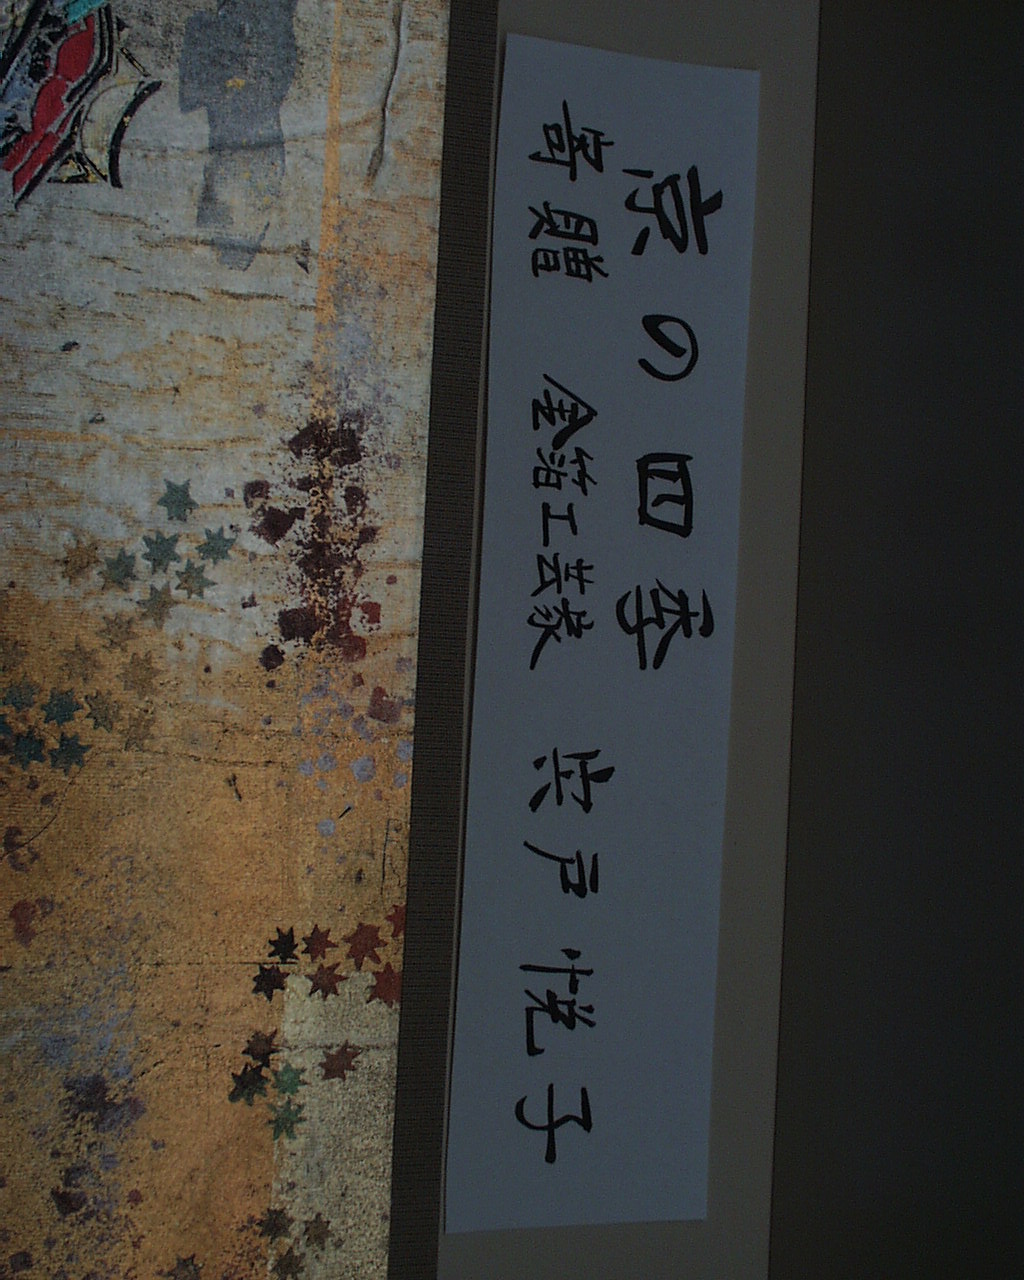 京の四季
寄贈 金箔工芸家 宍戸悦子